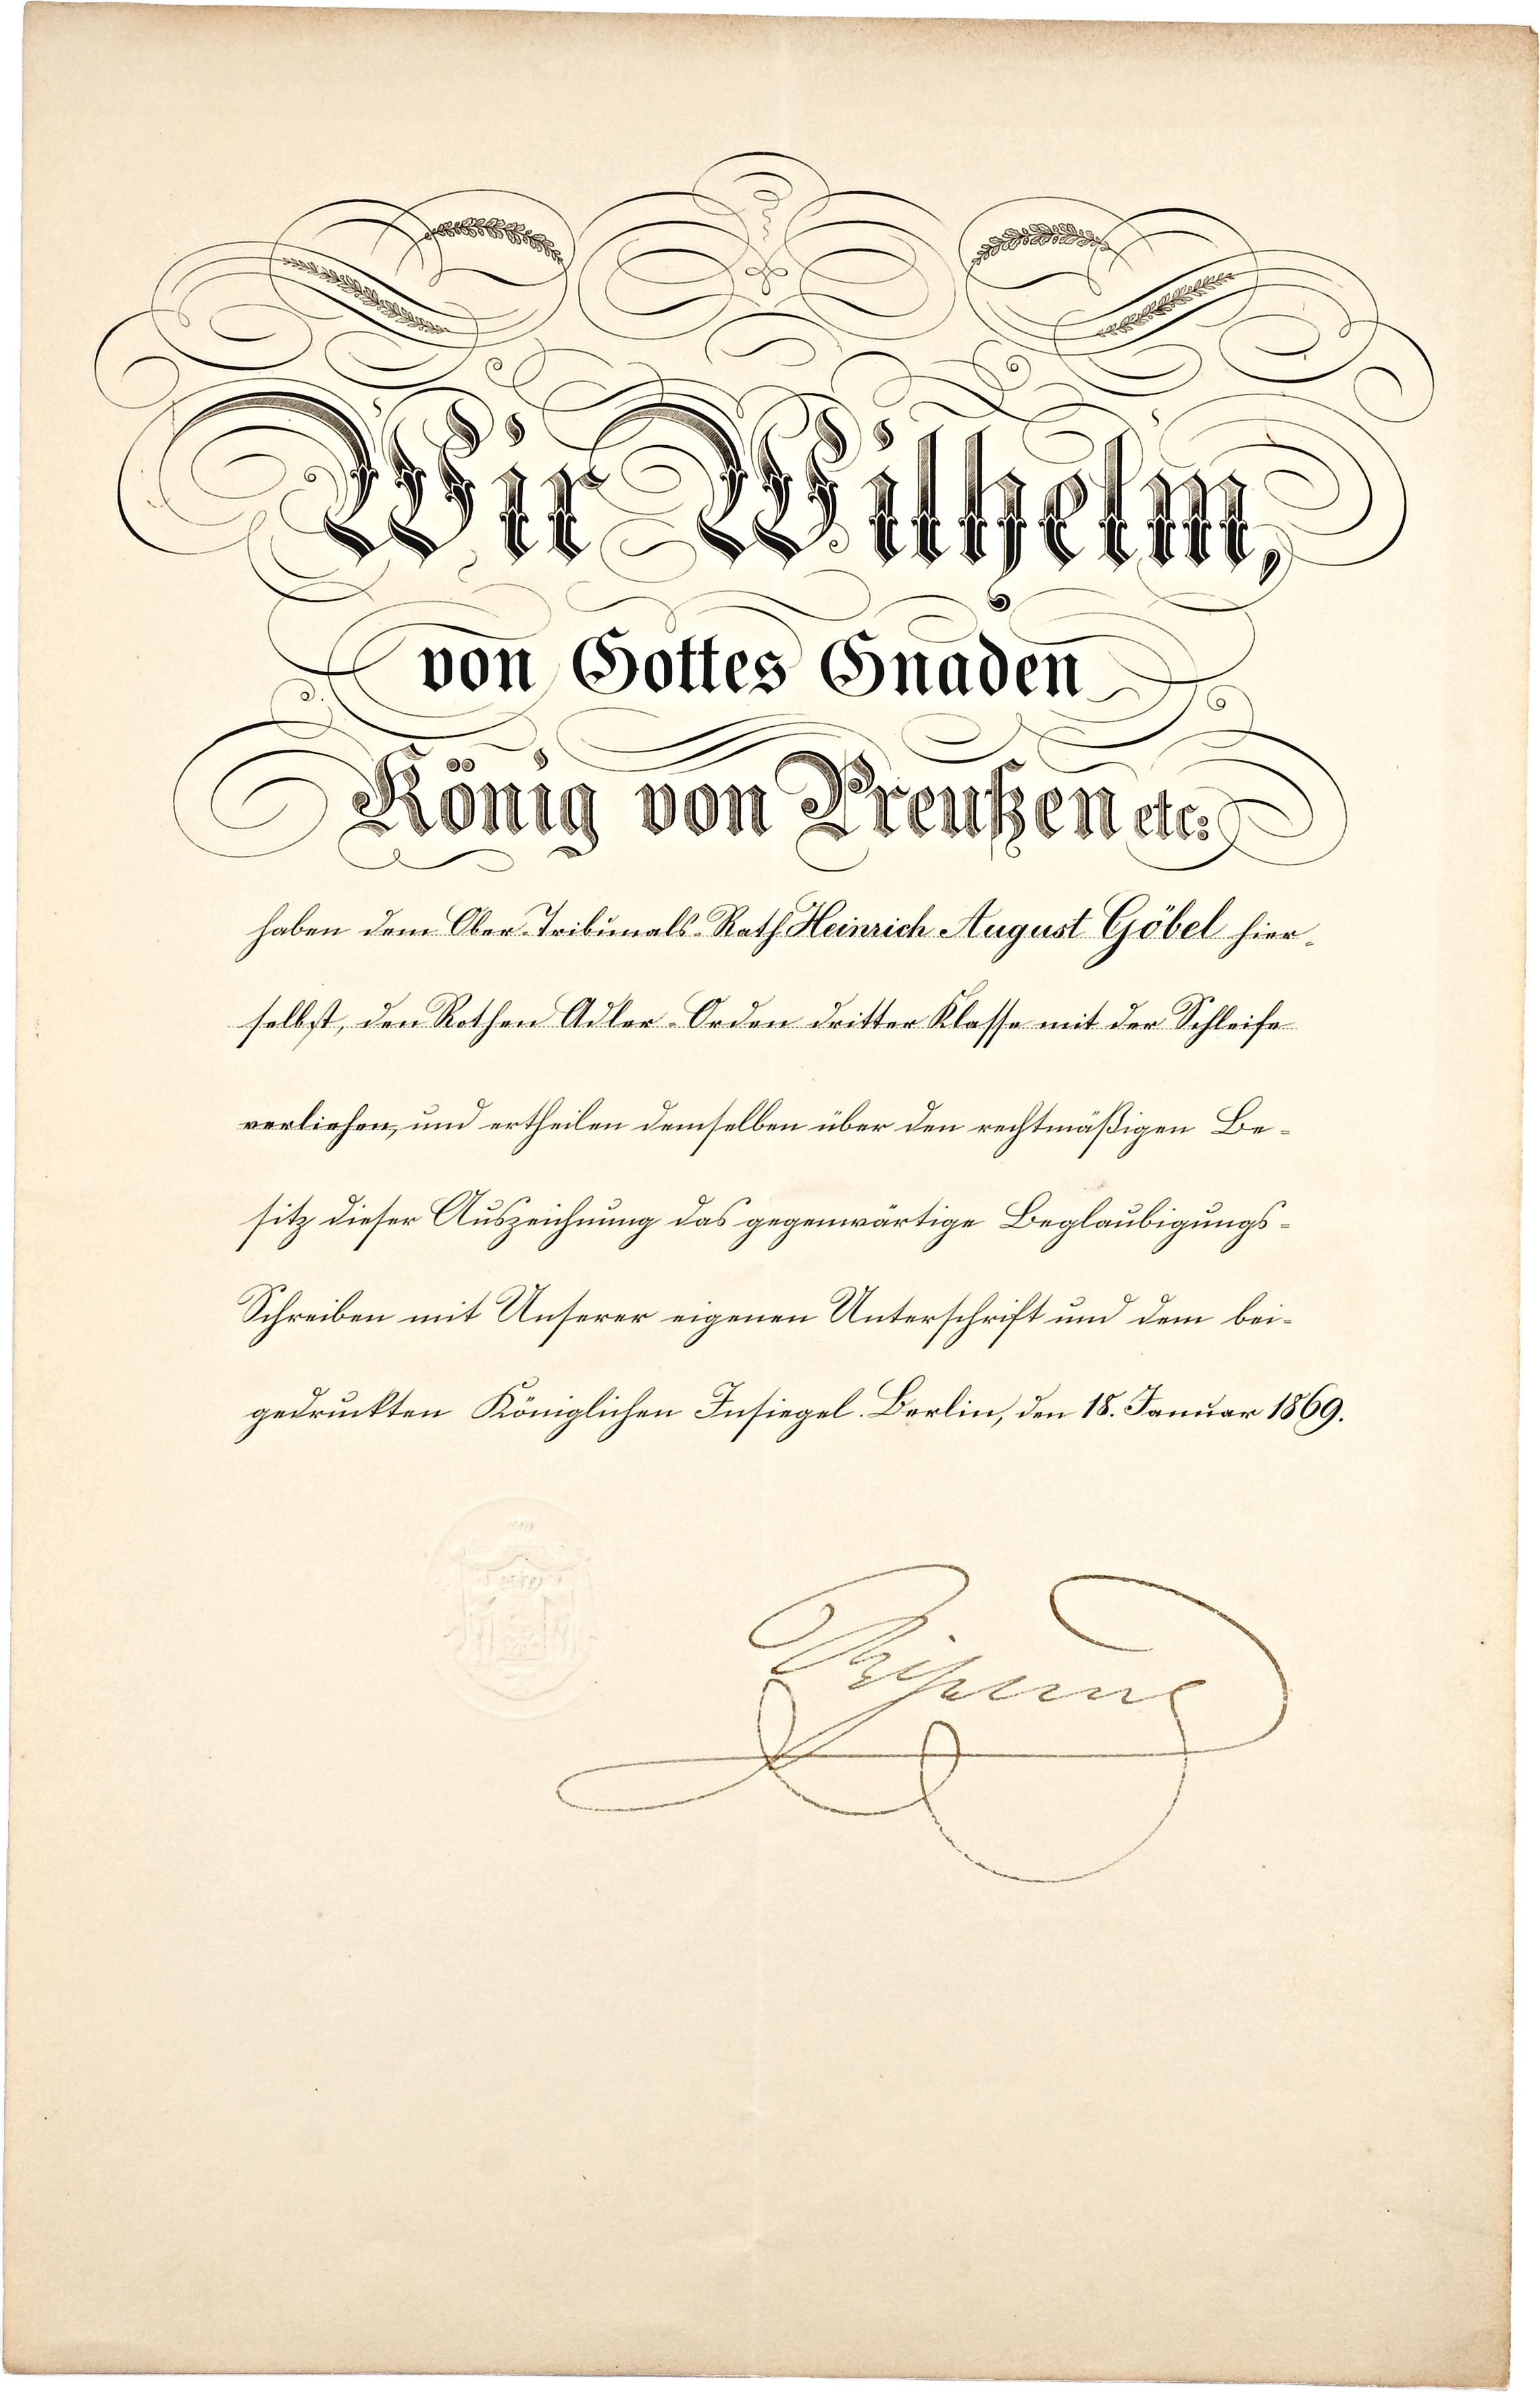 Wir Wilhelm,
von Gottes Gnaden
König von Preußen etc:
haben dem Ober-Tribunals-Rath Heinrich August Göbel hier-
selbst, den Rothen Adler-Orden dritter Klasse mit der Schleife
verliehen, und ertheilen demselben über den rechtmäßigen Be-
sitz dieser Auszeichnung das gegenwärtige Beglaubigungs-
Schreiben mit Unserer eigenen Unterschrift und dem bei-
gedruckten Königlichen Insiegel. Berlin, den 18. Januar 1869.